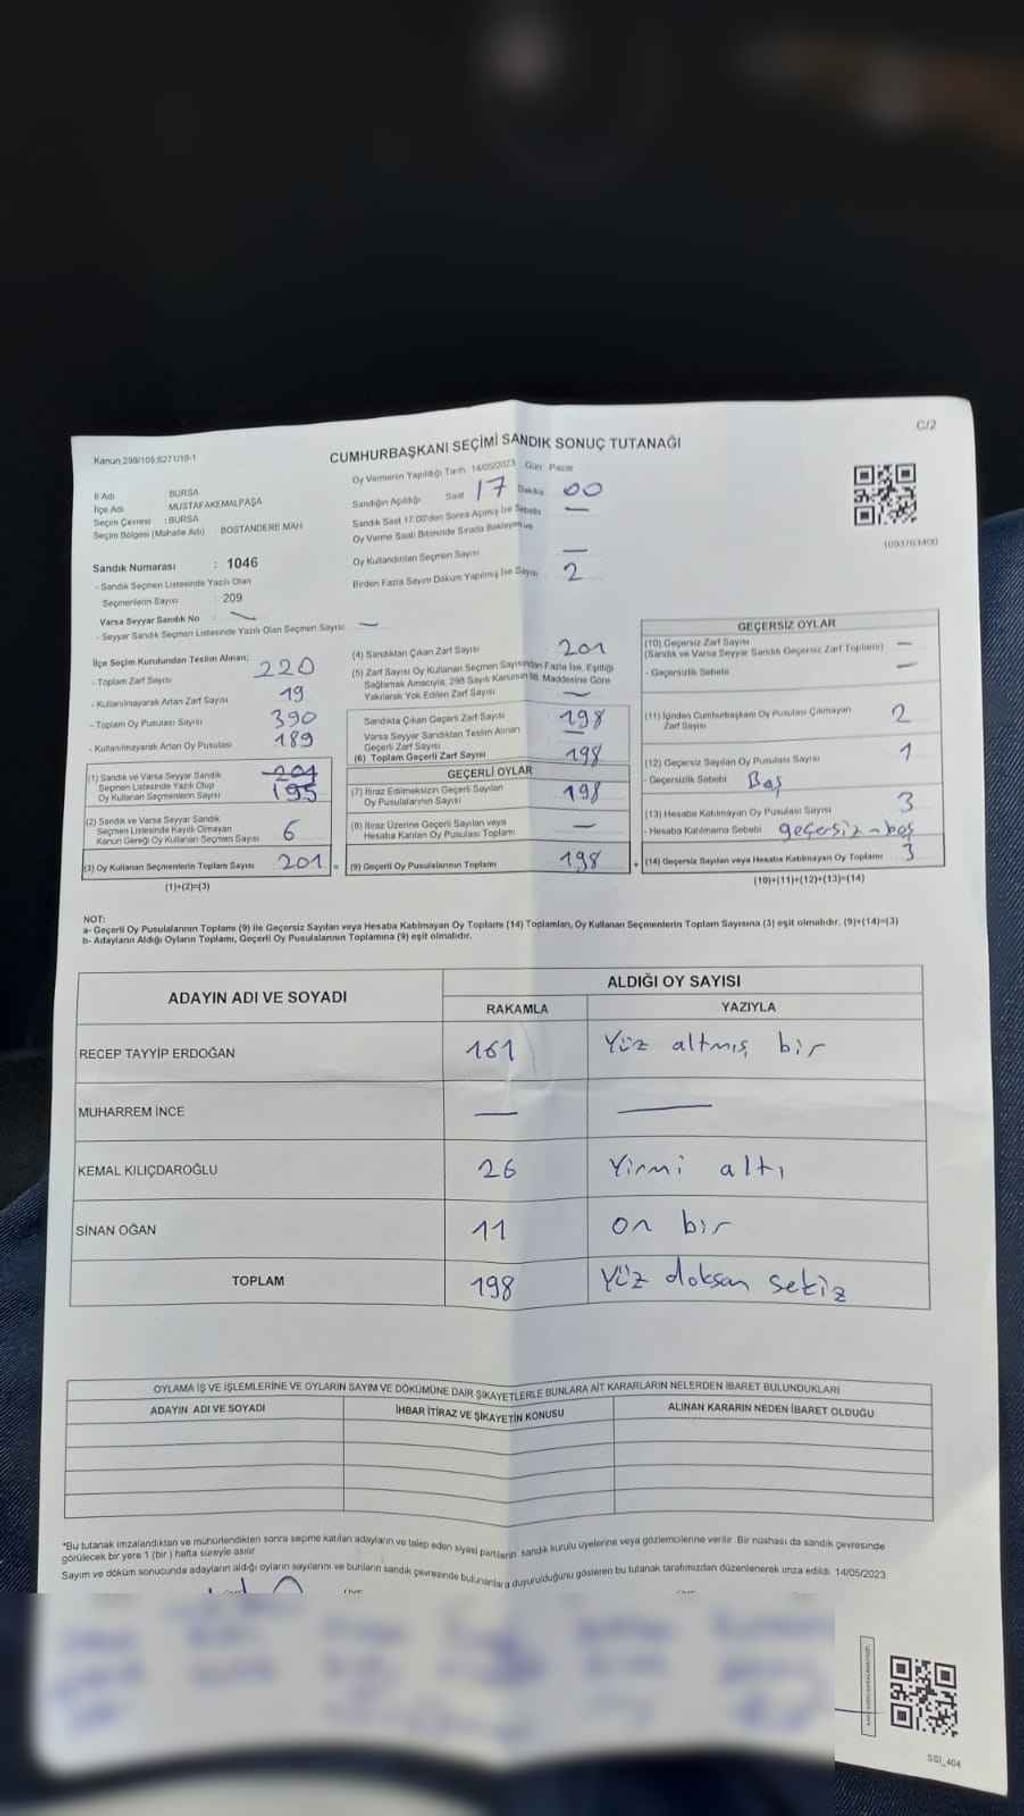 C/2
Kanun 298/105,6271/19-1
CUMHURBAŞKANI SEÇİMİ SANDIK SONUÇ TUTANAĞI
İl Adı BURSA
İlçe Adı MUSTAFAKEMALPAŞA
Seçim Çevresi : BURSA
Seçim Bölgesi (Mahalle Adı) BOSTANDERE MAH
Sandık Numarası : 1046
- Sandık Seçmen Listesinde Yazılı Olan
Seçmenlerin Sayısı 209
Varsa Seyyar Sandık No —
- Seyyar Sandık Seçmen Listesinde Yazılı Olan Seçmen Sayısı —
Oy Vermenin Yapıldığı Tarih 14/05/2023 Gün: Pazar
Sandığın Açıldığı Saat 17 Dakika 00
Sandık Saat 17:00'den Sonra Açılmış İse Sebebi —
Oy Verme Saati Bitiminde Sırada Bekleyen ve
Oy Kullandırılan Seçmen Sayısı —
Birden Fazla Sayım Döküm Yapılmış İse Sayısı 2
1093763400
İlçe Seçim Kurulundan Teslim Alınan;
- Toplam Zarf Sayısı 220
- Kullanılmayarak Artan Zarf Sayısı 19
- Toplam Oy Pusulası Sayısı 390
- Kullanılmayarak Artan Oy Pusulası 189
(1) Sandık ve Varsa Seyyar Sandık 201
Seçmen Listesinde Yazılı Olup
Oy Kullanan Seçmenlerin Sayısı 195
(2) Sandık ve Varsa Seyyar Sandık
Seçmen Listesinde Kayıtlı Olmayan
Kanun Gereği Oy Kullanan Seçmen Sayısı 6
(3) Oy Kullanan Seçmenlerin Toplam Sayısı 201 =
(1)+(2)=(3)
(4) Sandıktan Çıkan Zarf Sayısı 201
(5) Zarf Sayısı Oy Kullanan Seçmen Sayısından Fazla İse, Eşitliği
Sağlamak Amacıyla, 298 Sayılı Kanunun 98. Maddesine Göre
Yakılarak Yok Edilen Zarf Sayısı —
Sandıkta Çıkan Geçerli Zarf Sayısı 198
Varsa Seyyar Sandıktan Teslim Alınan
Geçerli Zarf Sayısı —
(6) Toplam Geçerli Zarf Sayısı 198
GEÇERLİ OYLAR
(7) İtiraz Edilmeksizin Geçerli Sayılan
Oy Pusulalarının Sayısı 198
(8) İtiraz Üzerine Geçerli Sayılan veya
Hesaba Katılan Oy Pusulası Toplamı —
(9) Geçerli Oy Pusulalarının Toplamı 198 +
GEÇERSİZ OYLAR
(10) Geçersiz Zarf Sayısı —
(Sandık ve Varsa Seyyar Sandık Geçersiz Zarf Toplamı)
- Geçersizlik Sebebi —
(11) İçinden Cumhurbaşkanı Oy Pusulası Çıkmayan
Zarf Sayısı 2
(12) Geçersiz Sayılan Oy Pusulası Sayısı 1
- Geçersizlik Sebebi Boş
(13) Hesaba Katılmayan Oy Pusulası Sayısı 3
- Hesaba Katılmama Sebebi geçersiz - boş
(14) Geçersiz Sayılan veya Hesaba Katılmayan Oy Toplamı 3
(10)+(11)+(12)+(13)=(14)
NOT:
a- Geçerli Oy Pusulalarının Toplamı (9) ile Geçersiz Sayılan veya Hesaba Katılmayan Oy Toplamı (14) Toplamları, Oy Kullanan Seçmenlerin Toplam Sayısına (3) eşit olmalıdır. (9)+(14)=(3)
b- Adayların Aldığı Oyların Toplamı, Geçerli Oy Pusulalarının Toplamına (9) eşit olmalıdır.
ADAYIN ADI VE SOYADI
ALDIĞI OY SAYISI
RAKAMLA YAZIYLA
RECEP TAYYİP ERDOĞAN 161 Yüz altmış bir
MUHARREM İNCE — —
KEMAL KILIÇDAROĞLU 26 Yirmi altı
SİNAN OĞAN 11 on bir
TOPLAM 198 Yüz doksan sekiz
OYLAMA İŞ VE İŞLEMLERİNE VE OYLARIN SAYIM VE DÖKÜMÜNE DAİR ŞİKAYETLERLE BUNLARA AİT KARARLARIN NELERDEN İBARET BULUNDUKLARI
ADAYIN ADI VE SOYADI İHBAR İTİRAZ VE ŞİKAYETİN KONUSU ALINAN KARARIN NEDEN İBARET OLDUĞU
*Bu tutanak imzalandıktan ve mühürlendikten sonra seçime katılan adayların ve talep eden siyasi partilerin sandık kurulu üyelerine veya gözlemcilerine verilir. Bir nüshası da sandık çevresinde
görülecek bir yere 1 (bir) hafta süreyle asılır
Sayım ve döküm sonucunda adayların aldığı oyların sayılarını ve bunların sandık çevresinde bulunanlara duyurulduğunu gösteren bu tutanak tarafımızdan düzenlenerek imza edildi. 14/05/2023
SSI_404